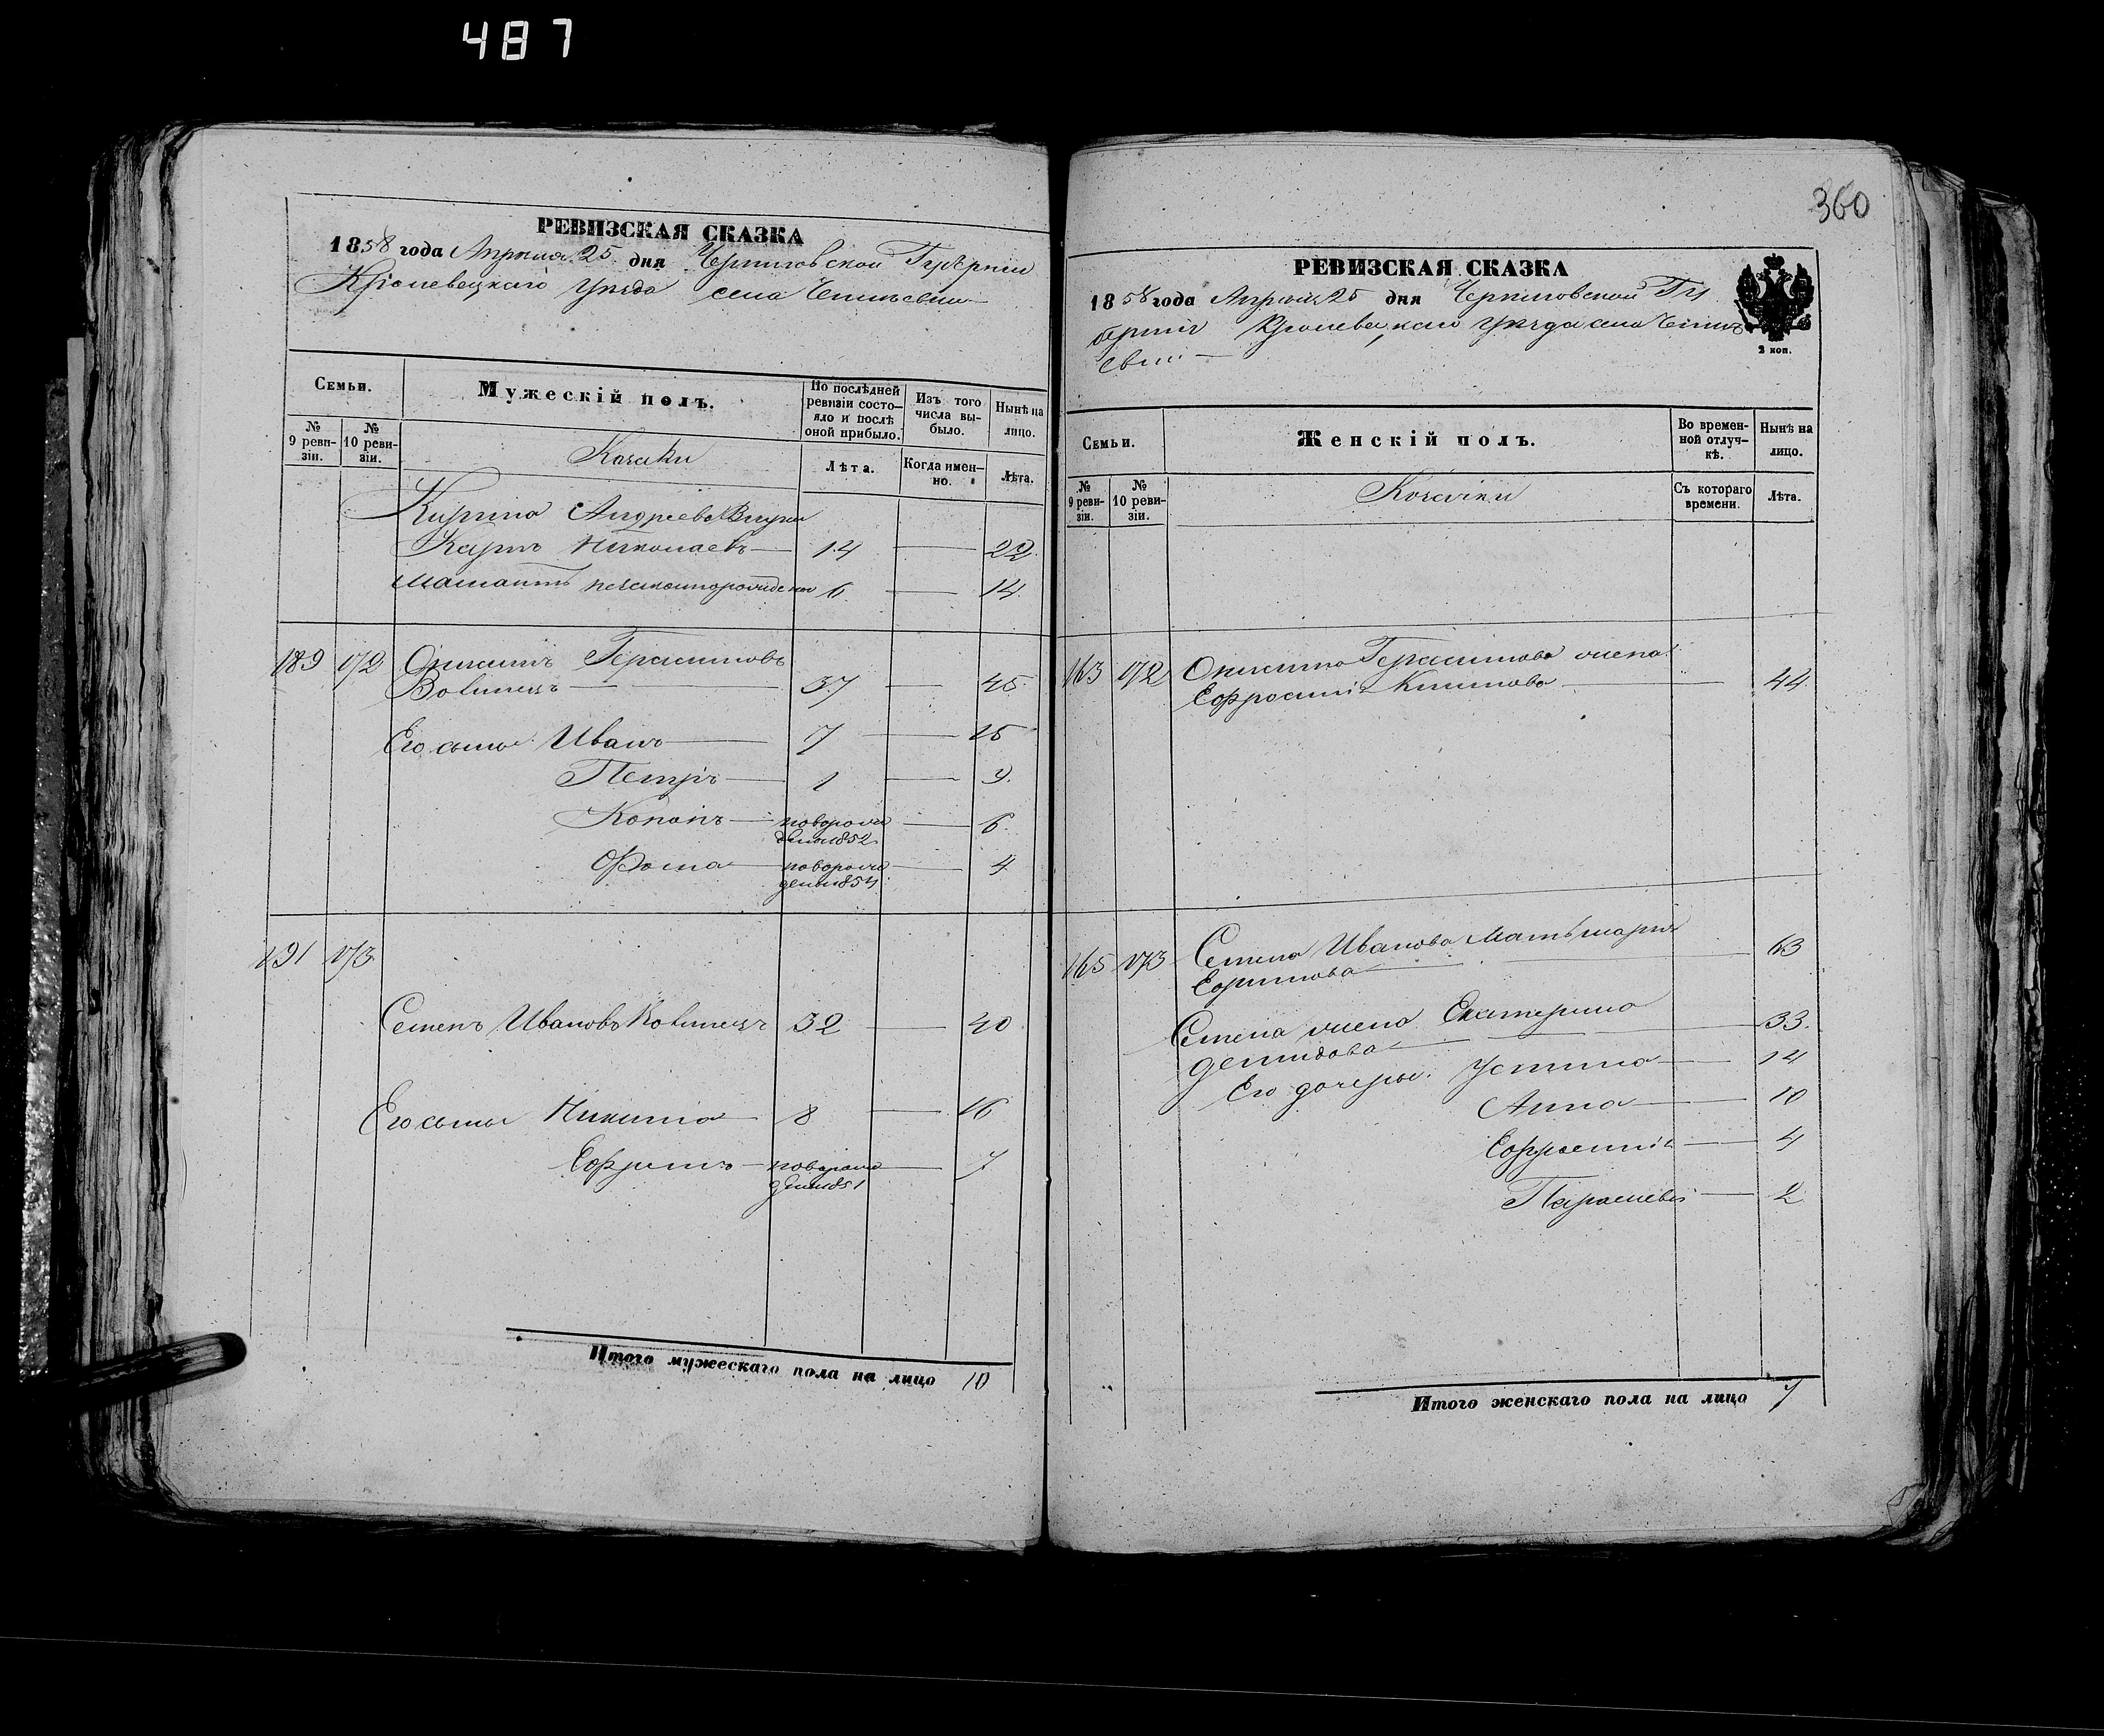 487
РЕВИЗСКАЯ СКАЗКА
1858 года Апреля 25 дня Черниговской Губернии
Кролевецкаго уезда села
Семьи.
Мужескій полъ.
По послѣдней ревизіи состо-
яло и послѣ
оной прибыло.
Изъ того
числа вы-
было.
Нынѣ на
лицо.
№
9 реви-
зіи.
№
10 реви-
зіи.
Козаки
Лѣта.
Когда имен-
но.
Лѣта.
Андреева Внуки
Карпъ Николаевъ 14 22
6 14
189 172 Онисимъ Герасимовъ
37 45
Его сыны Иванъ 7 15
Петръ 1 9
Кононъ новорож
денъ 1852 6
Фома новорож
денъ 1854 4
191 173
Семенъ Ивановъ 32 40
Его сыны Никита 8 16
Ефремъ новорож
денъ 1851 7
Итого мужескаго пола на лицо 10
360
РЕВИЗСКАЯ СКАЗКА
1858 года Апреля 25 дня Черниговской Гу
берніи Кролевецкаго уезда села
2 коп.
Семьи.
Женскій полъ.
Во времен-
ной отлуч-
кѣ.
Нынѣ на
лицо.
№
9 реви-
зіи.
№
10 реви-
зіи.
Козачки
Съ котораго
времени.
Лѣта.
163 172 Онисима Герасимова жена
Ефросинія 44
165 173 Семена Иванова Мать Марія
63
Семена жена Екатерина
Демидова 33
Его дочеры Устина 14
Анна 10
Ефросинія 4
Параскева 2
Итого женскаго пола на лицо 7